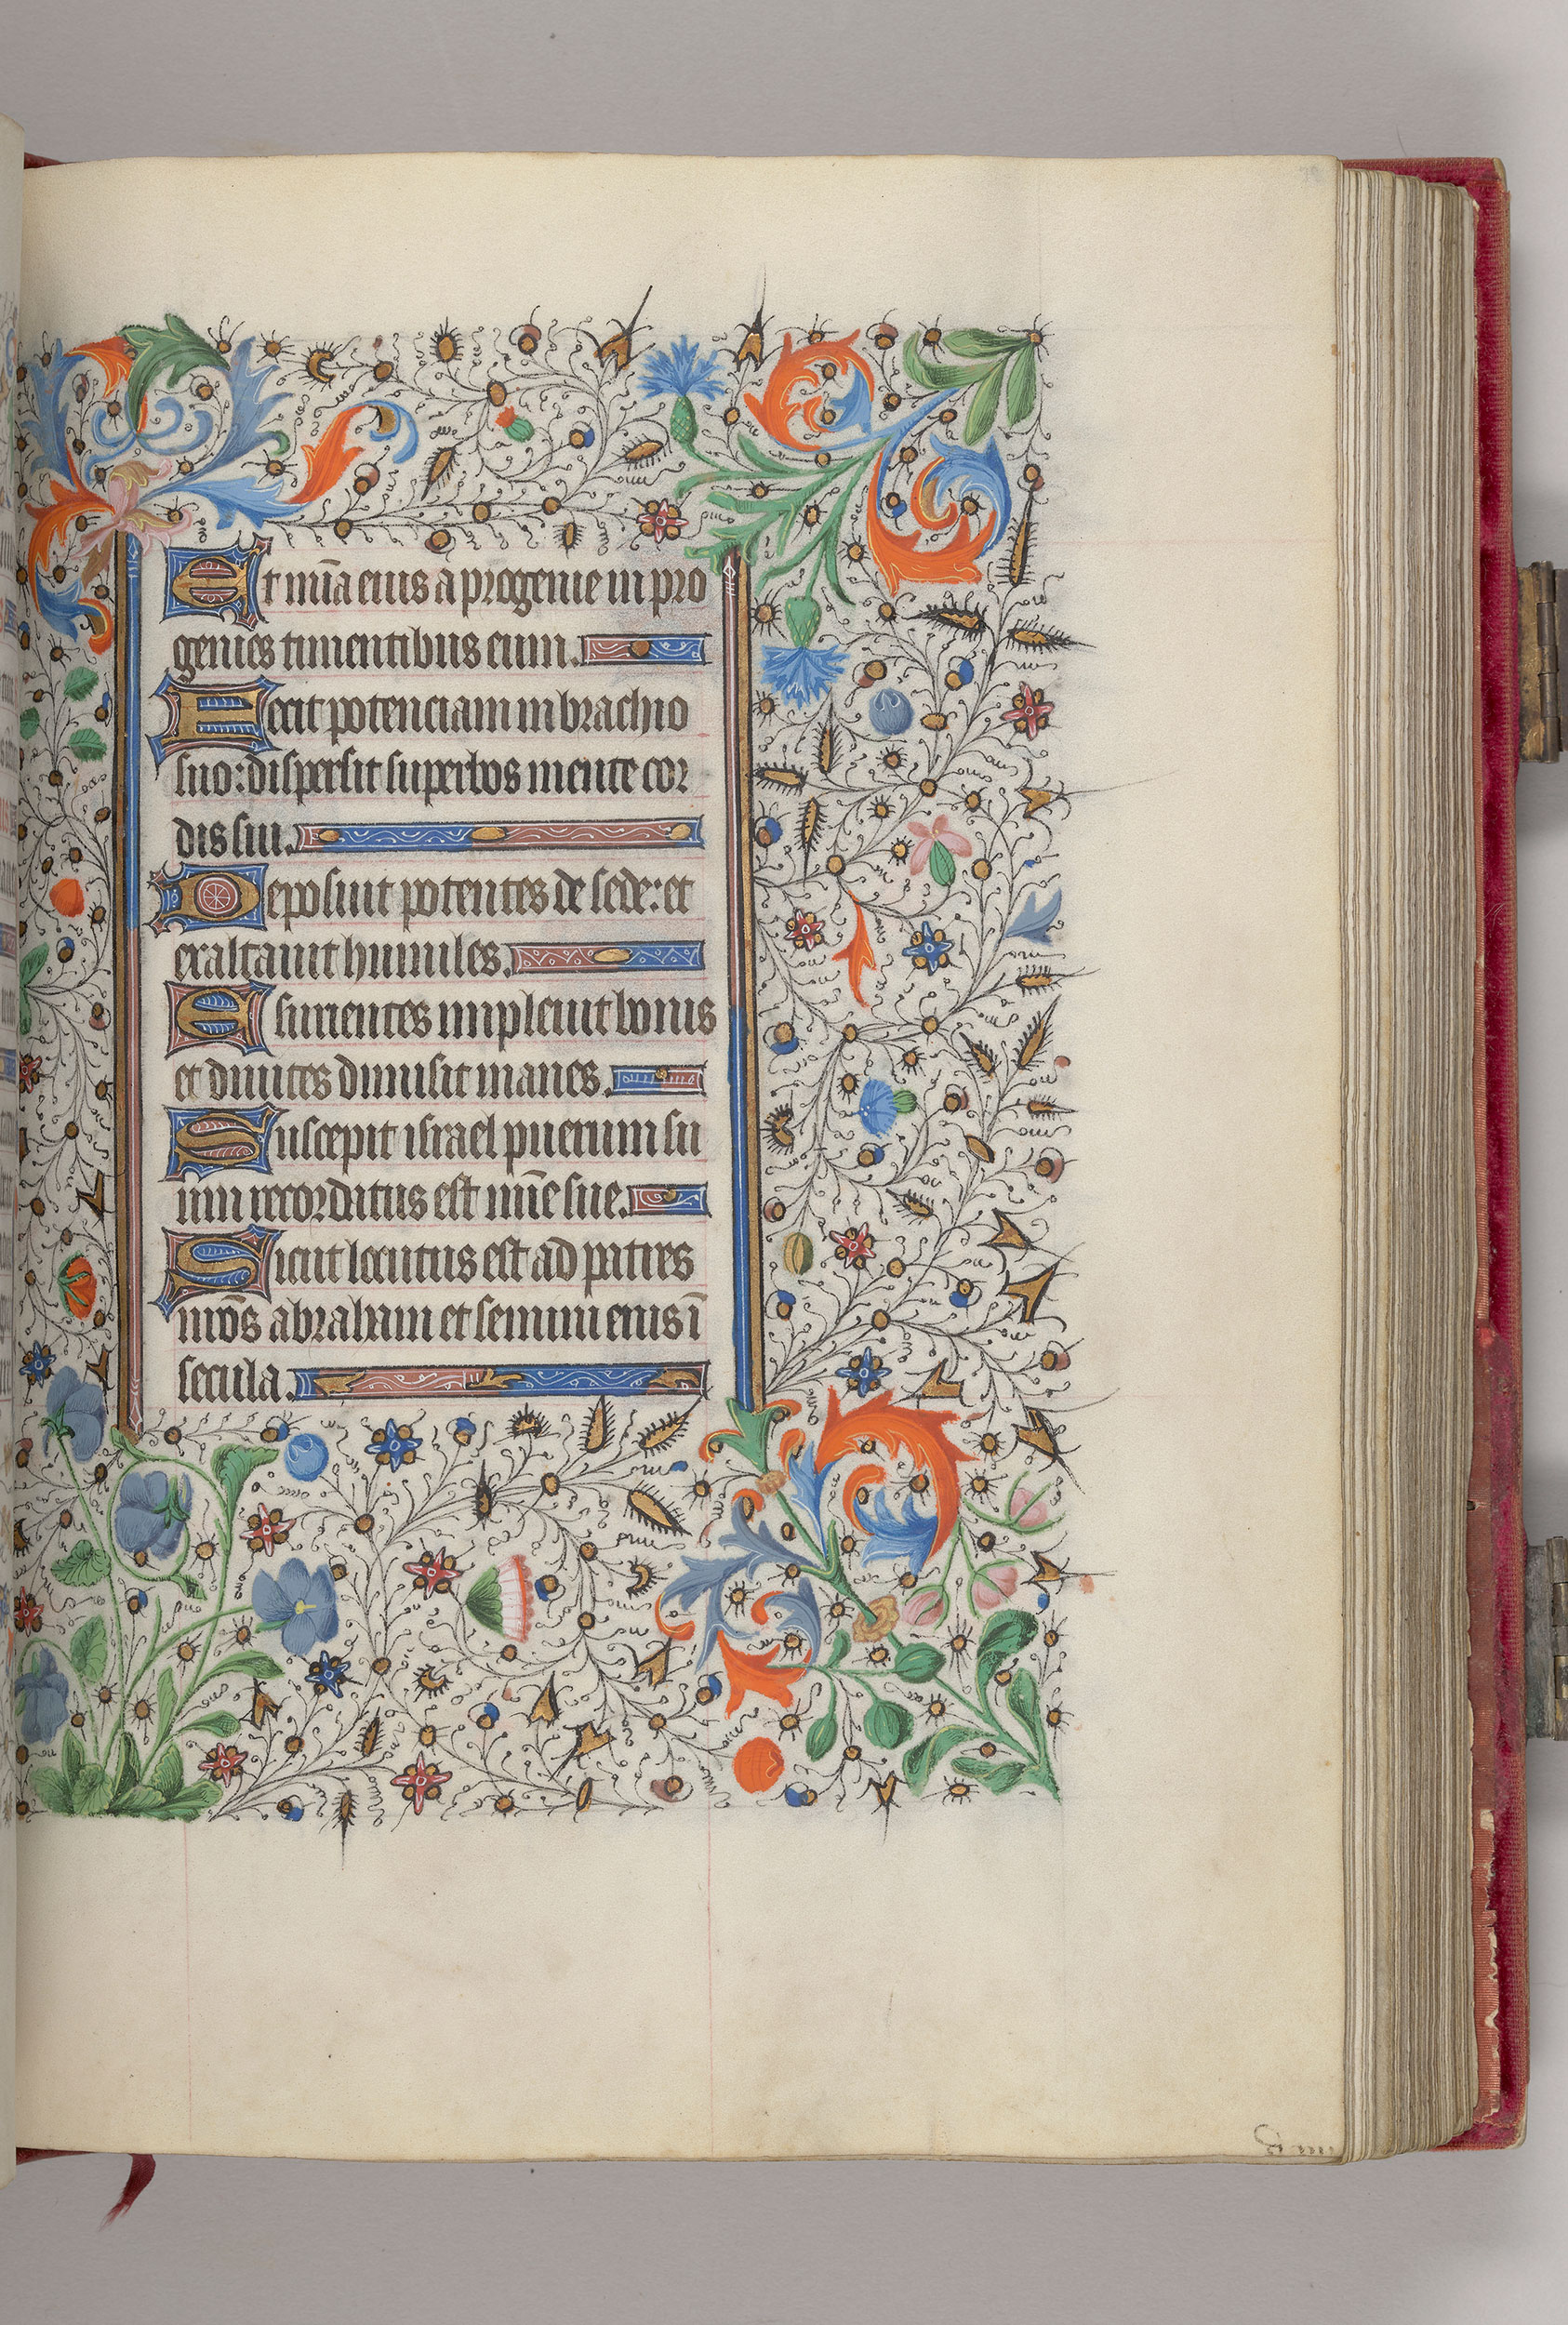 Et mīa eius a progenie in pro
genies timentibus eum.
Fecit potenciam in brachio
suo: dispersit superbos mente cor
dis sui.
Deposuit potentes de sede: et
exaltauit humiles.
Esurientes impleuit bonis
et diuites dimisit inanes.
Suscepit israel puerum su
um recorditus est mīe sue.
Sicut locutus est ad patres
nrōs abraham et semini eius ī
secula.